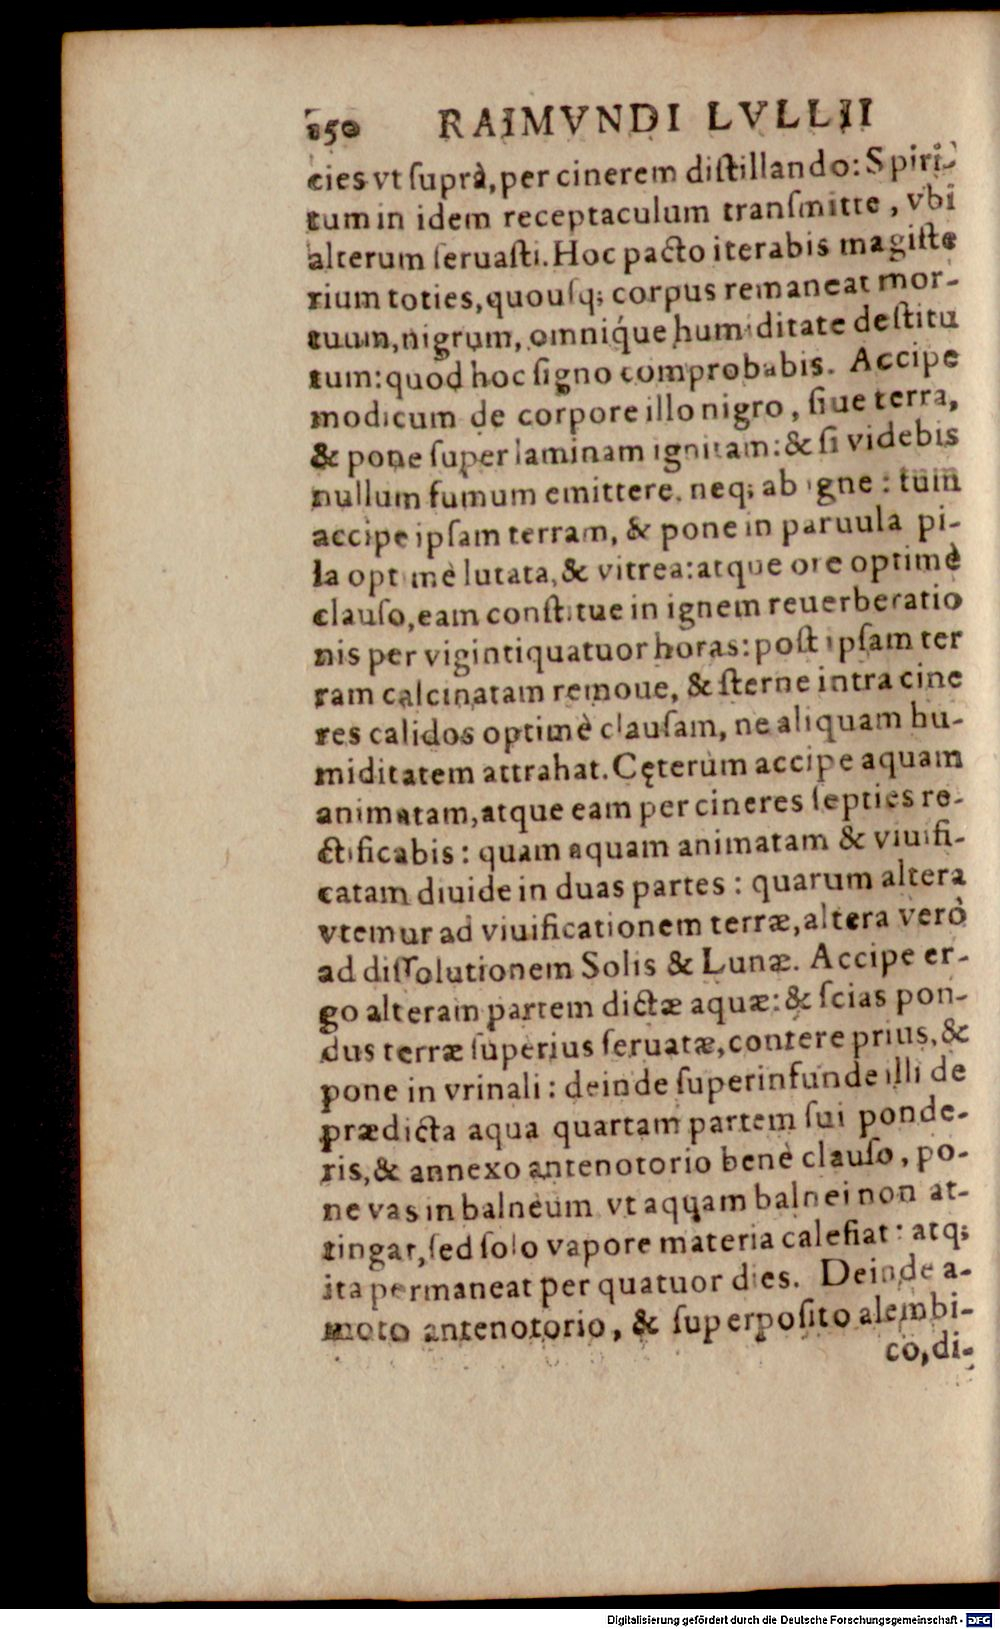 150 RAIMVNDI LVLLII
cies vt suprà, per cinerem distillando: Spiri-
tum in idem receptaculum transmitte, vbi
alterum seruasti. Hoc pacto iterabis magiste
rium toties, quousq; corpus remaneat mor-
tuum, nigrum, omniq́ue humiditate destitu
tum: quod hoc signo comprobabis. Accipe
modicum de corpore illo nigro, siue terra,
& pone super laminam ignitam: & si videbis
nullum fumum emittere, neq; ab igne: tum
accipe ipsam terram, & pone in paruula pi-
la optimè lutata, & vitrea: atque ore optimè
clauso, eam constitue in ignem reuerberatio
nis per vigintiquatuor horas: post ipsam ter
ram calcinatam remoue, & sterne intra cine
res calidos optimè clausam, ne aliquam hu-
miditatem attrahat. Cęterùm accipe aquam
animatam, atque eam per cineres septies re-
ctificabis: quam aquam animatam & viuifi-
catam diuide in duas partes: quarum altera
vtemur ad viuificationem terræ, altera verò
ad dissolutionem Solis & Lunæ. Accipe er-
go alteram partem dictæ aquæ: & scias pon-
dus terræ superius seruatæ, contere prius, &
pone in vrinali: deinde superinfunde illi de
prædicta aqua quartam partem sui ponde-
ris, & annexo antenotorio benè clauso, po-
ne vas in balneum vt aquam balnei non at-
tingat, sed solo vapore materia calefiat: atq;
ita permaneat per quatuor dies. Deinde a-
moto antenotorio, & superposito alembi-
co, di-
Digitalisierung gefördert durch die Deutsche Forschungsgemeinschaft - DFG